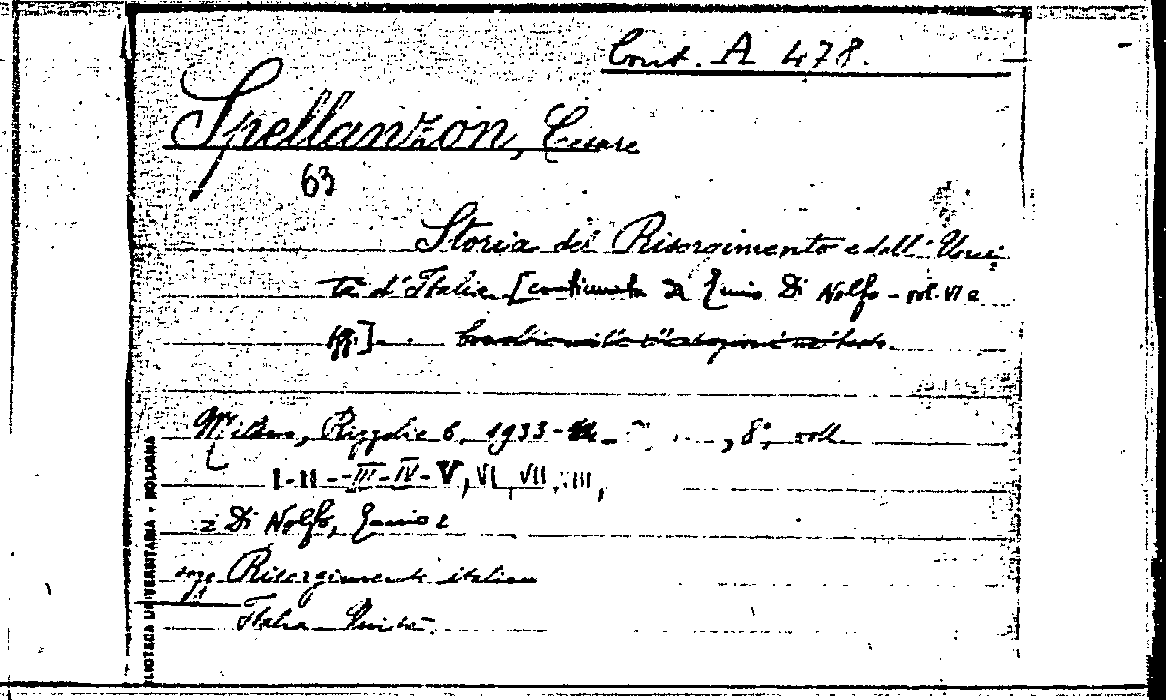 Cont. A 478.
Spellanzon, Cesare
63
Storia del Risorgimento e dell'Uni-
tà d'Italia [continuata da Ennio Di Nolfo - vol. VI e
sgg.] -
Milano, Rizzoli e C., 1933- , 8°, voll.
I-II-III-IV-V, VI, VII, VIII,
= Di Nolfo, Ennio =
sogg. Risorgimento italiano
Italia Unità
BIBLIOTECA UNIVERSITARIA - BOLOGNA